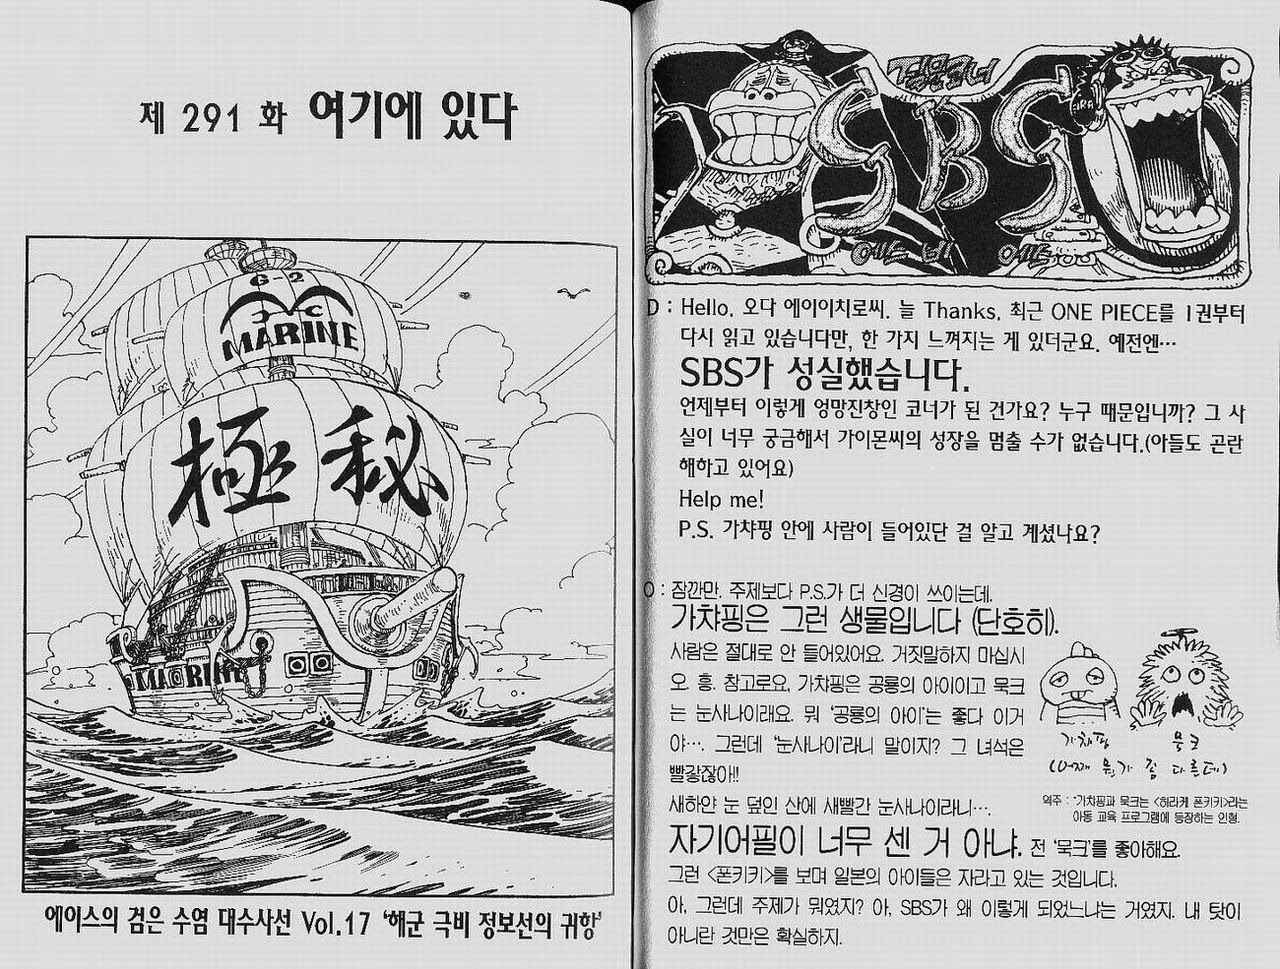 제 291 화 여기에 있다
G-2
MARINE
極秘
MARINE
에이스의 검은 수염 대수사선 Vol.17 '해군 극비 정보선의 귀항'
SBS
에스 비 에스
D : Hello. 오다 에이이치로씨. 늘 Thanks. 최근 ONE PIECE를 1권부터
다시 읽고 있습니다만, 한 가지 느껴지는 게 있더군요. 예전엔…
SBS가 성실했습니다.
언제부터 이렇게 엉망진창인 코너가 된 건가요? 누구 때문입니까? 그 사
실이 너무 궁금해서 가이몬씨의 성장을 멈출 수가 없습니다.(아들도 곤란
해하고 있어요)
Help me!
P.S. 가챠핑 안에 사람이 들어있단 걸 알고 계셨나요?
O : 잠깐만. 주제보다 P.S.가 더 신경이 쓰이는데.
가챠핑은 그런 생물입니다 (단호히).
사람은 절대로 안 들어있어요. 거짓말하지 마십시
오. 흥. 참고로요, 가챠핑은 공룡의 아이이고 묵크
는 눈사나이래요. 뭐 '공룡의 아이'는 좋다 이거
야…. 그런데 '눈사나이'라니 말이지? 그 녀석은
빨갛잖아!!
새하얀 눈 덮인 산에 새빨간 눈사나이라니….
자기어필이 너무 센 거 아냐. 전 '묵크'를 좋아해요.
그런 <폰키키>를 보며 일본의 아이들은 자라고 있는 것입니다.
아, 그런데 주제가 뭐였지? 아, SBS가 왜 이렇게 되었느냐는 거였지. 내 탓이
아니란 것만은 확실하지.
가챠핑 묵크
(어째 뭔가 좀 다른데)
역주 : '가챠핑과 묵크는 <히라케 폰키키>라는
아동 교육 프로그램에 등장하는 인형.